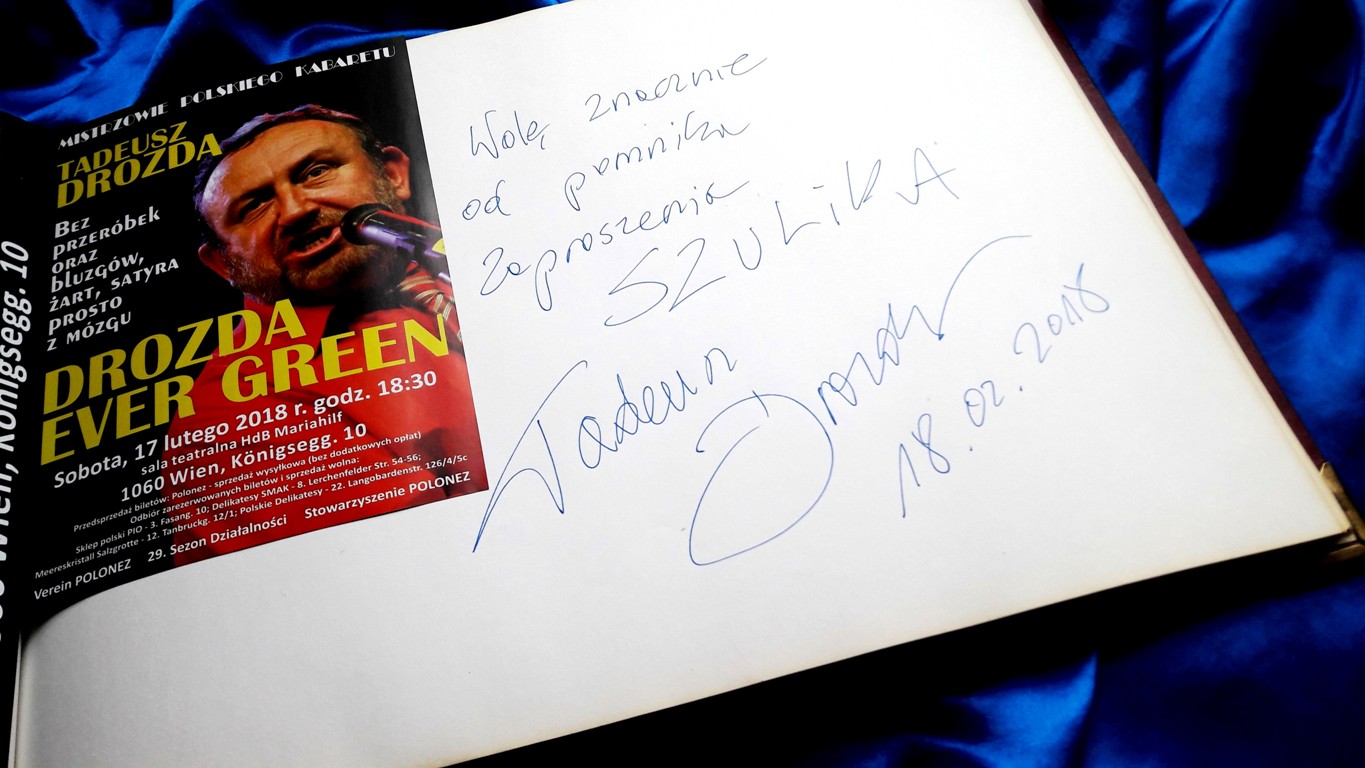 MISTRZOWIE POLSKIEGO KABARETU
TADEUSZ
DROZDA
BEZ
PRZERÓBEK
ORAZ
BLUZGÓW,
ŻART, SATYRA
PROSTO
Z MÓZGU
DROZDA
EVER GREEN
Sobota, 17 lutego 2018 r. godz. 18:30
sala teatralna HdB Mariahilf
1060 Wien, Königsegg. 10
Przedsprzedaż biletów: Polonez - sprzedaż wysyłkowa (bez dodatkowych opłat)
Odbiór zarezerwowanych biletów i sprzedaż wolna:
Sklep polski PIO - 3. Fasang. 10; Delikatesy SMAK - 8. Lerchenfelder Str. 54-56;
Meereskristall Salzgrotte - 12. Tanbruckg. 12/1; Polskie Delikatesy - 22. Langobardenstr. 126/4/5c
Verein POLONEZ 29. Sezon Działalności Stowarzyszenie POLONEZ
Wien, Königsegg. 10
Wolę znacznie
od pomnika
Zaproszenia
SZULIKA
Tadeusz
Drozda
18.02.2018